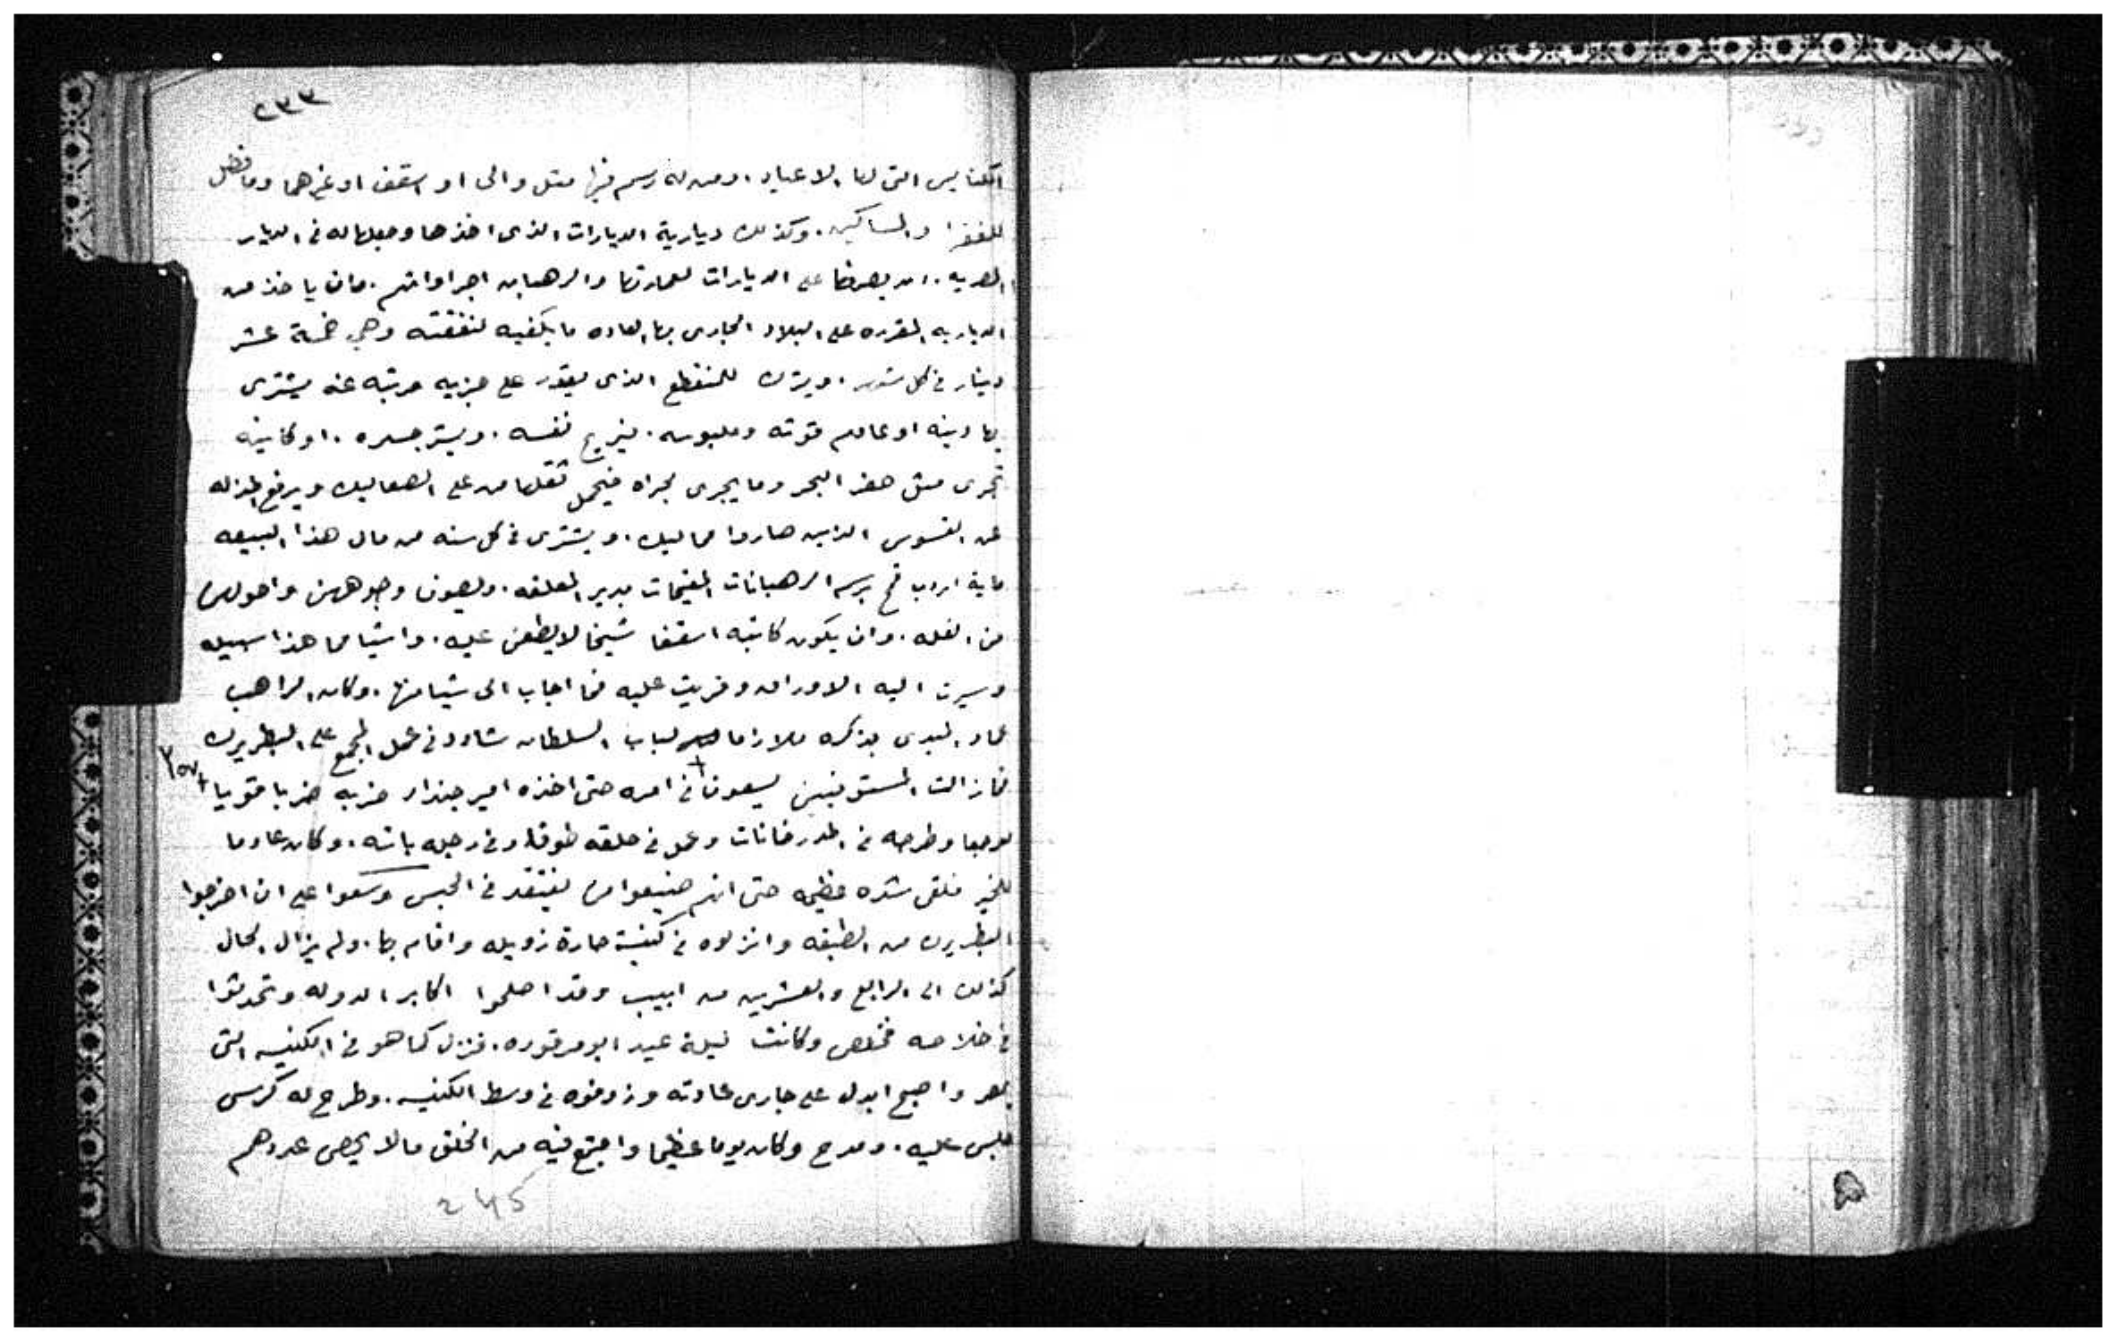 ٢٣٣
الكنايس التى لها الاعياد. ومن له رسم فيها مثل والى او اسقف او غيرهما وما فضل
للفقرا والمساكين. وكذلك ديارية الديارات الذى اخذها وجعلها له فى الديار
المصريه. ان يصرفها على الديارات لعمارتها والرهبان اجراواتهم. وان ياخذ من
الدياريه المقرره على البلاد الجارى بها العاده ما يكفيه لنفقته وهي خمسة عشر
دينار فى كل شهر. ويترك للمنقطع الذى يقدر على جزيه مرتبه عنه يشترى
بها دينه او عادم قوته وملبوسه. فيريح نفسه. ويستر جسده. او كاينه
تجرى مثل حفر البحر وما يجرى مجراه فيحمل ثقلها من على الصعاليك ويرفع المذله
عن القسوس الذين صاروا مماليك. ويشترى فى كل سنه من مال هذا البيعه
ماية اردب قمح برسم الرهبانات المقيمات بدير المعلقه. ويصون وجوههن واحولهن
من الغله. وان يكون كاتبه اسقفا شيخا لا يطعن عليه. واشيا مما هذا سبيله
وسيرت اليه الاوراق وقريت عليه فما اجاب الى شيا منها. وكان الراهب
عماد المبدى بذكره ملازما لباب السلطان شاور فى عمل المجمع على البطريرك
فما زالت المستوفيين يسعون فى امره حتى اخذه امير جندار ضربه ضربا قويا
موجعا وطرحه فى المدرخانات وعمل فى حلقه طوقا وفى رجله باشه. وكان عادما
للخير فلقى شده عظيمه حتى انهم ضيعوا من يفتقد فى الحبس وسعوا على ان اخرجوا
البطريرك من الطبقه وانزلوه فى كنيسة حارة زويله واقام بها. ولم يزال الحال
كذلك الى الرابع والعشرين من ابيب وقد اصلحوا اكابر الدوله وتحدثوا
فى خلاصه فخلص وكانت ليلة عيد ابو مرقوره. فنزل كما هو فى الكنيسه التى
بمصر واصبح ابدل على جارى عادته وزوفوه فى وسط الكنيسه. وطرح له كرسى
جلس عليه. ومدح وكان يوما عظيما واجتمع فيه من الخلق ما لا يحصى عددهم
245